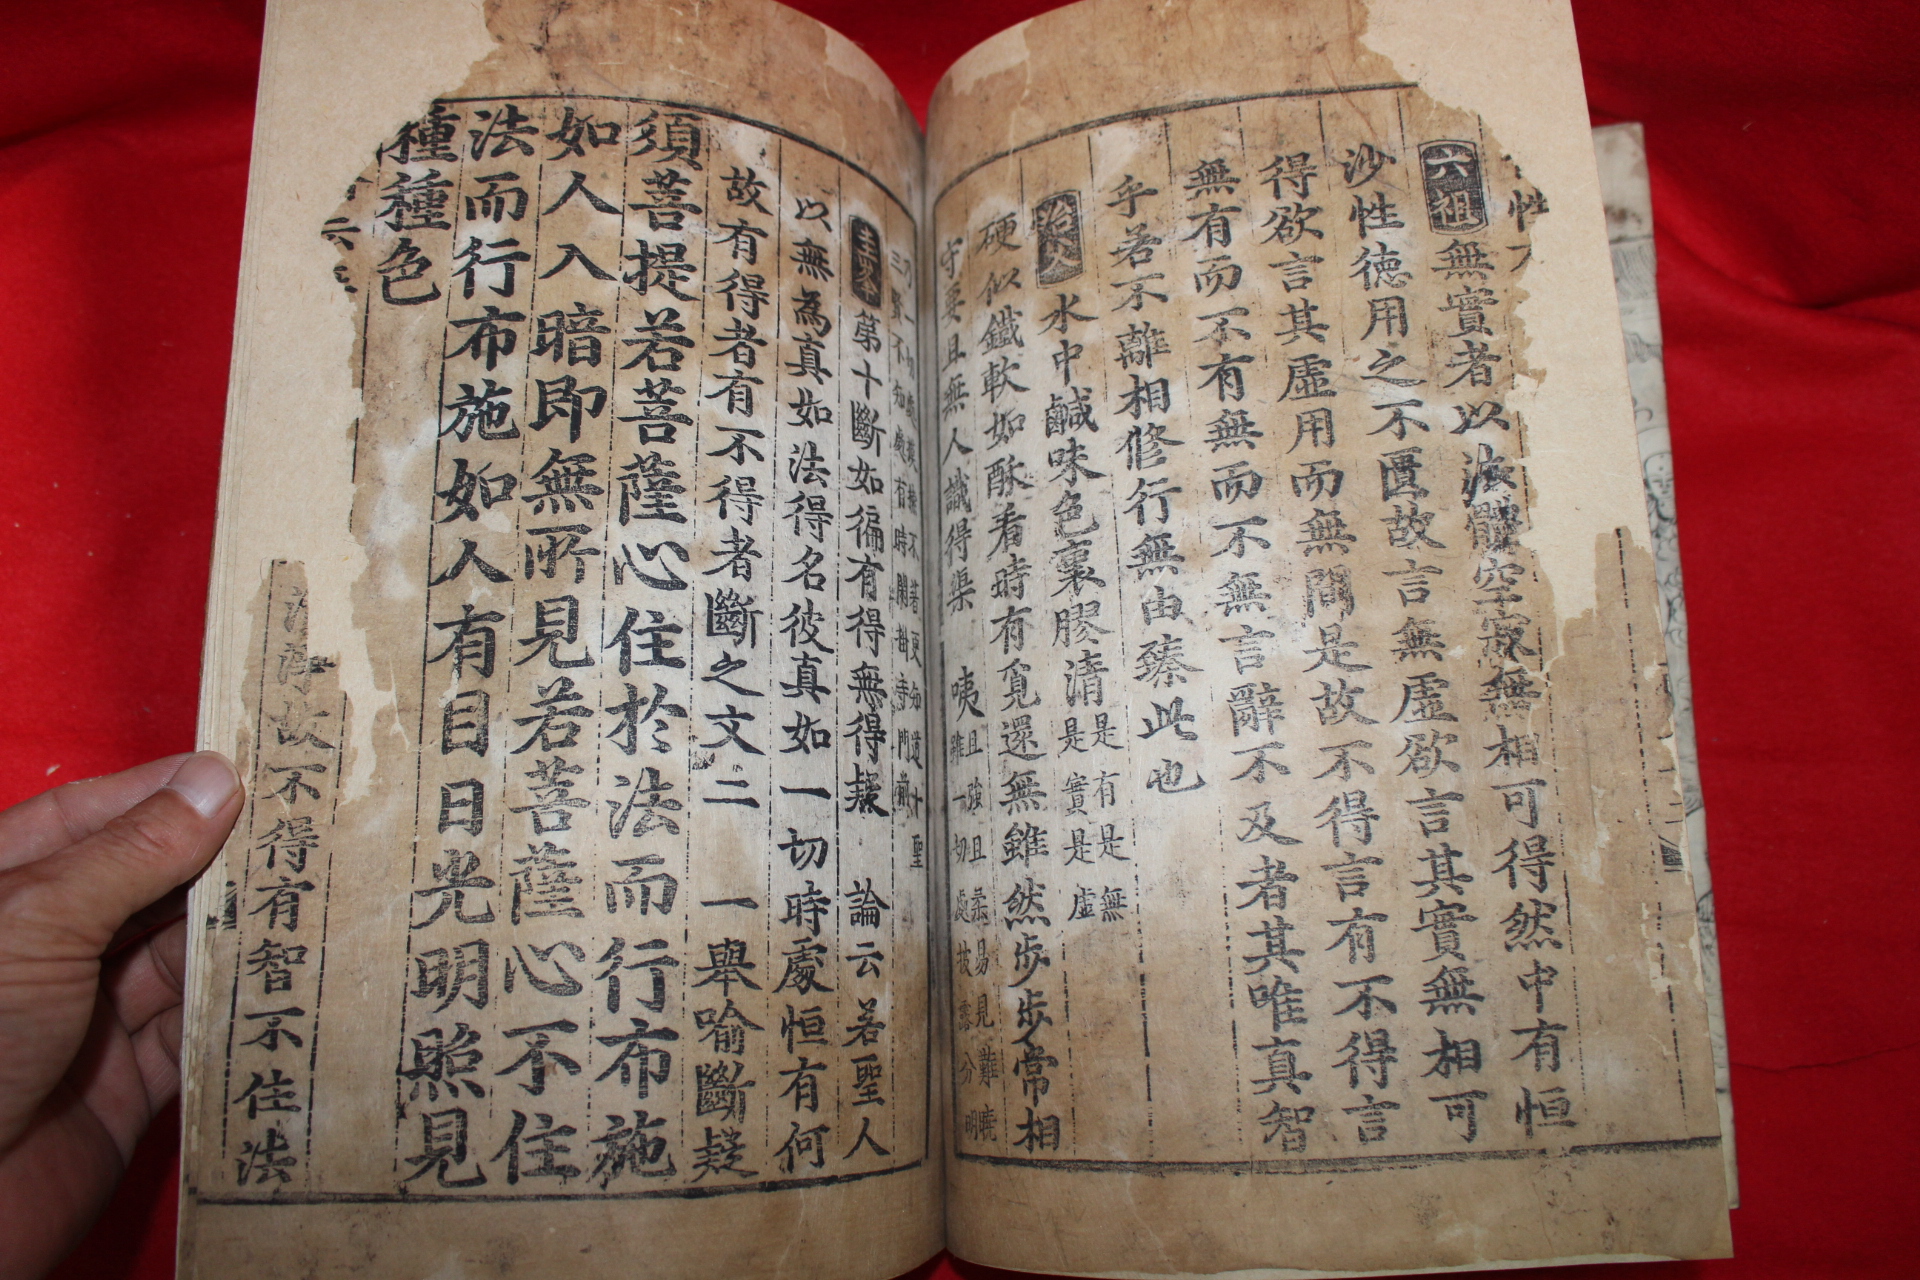 性
六祖 無實者以法體空寂無相可得然中有恒
沙性德用之不匱故言無虛欲言其實無相可
得欲言其虛用而無間是故不得言有不得言
無有而不有無而不無言辭不及者其唯真智
乎若不離相修行無由臻此也
冶父 水中鹹味色裏膠清 是有是無
是實是虛
硬似鐵軟如酥看時有覓還無雖然步步常相
守要且無人識得渠 咦 且強且柔易見難曉
雖一切處披露分明
不著更知道十聖
三賢不知處有時閑掛寺門前
圭峯 第十斷如徧有得無得疑 論云若聖人
以無為真如法得名彼真如一切時處恒有何
故有得者有不得者斷之文二 一舉喻斷疑
須菩提若菩薩心住於法而行布施
如人入暗即無所見若菩薩心不住
法而行布施如人有目日光明照見
種種色
故不得有智不住法